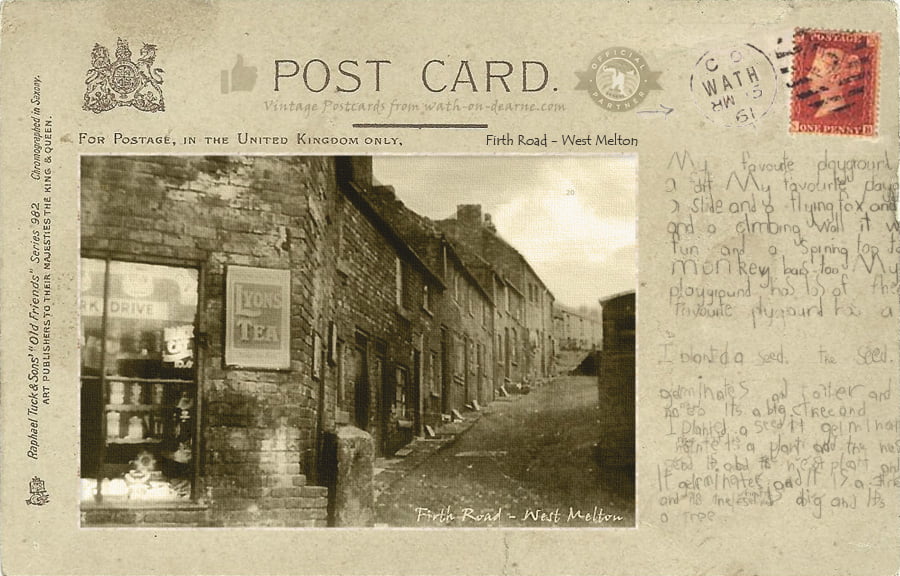 POST CARD.
Vintage Postcards from wath-on-dearne.com
OFFICIAL PARTNER
C O
WATH
MR 5
61
POSTAGE
ONE PENNY
FOR POSTAGE, IN THE UNITED KINGDOM ONLY.
Firth Road - West Melton
Raphael Tuck & Sons' "Old Friends" Series 982 Chromographed in Saxony.
ART PUBLISHERS TO THEIR MAJESTIES THE KING & QUEEN.
DRIVE
LYONS'
TEA
20
Firth Road - West Melton
My favourite playground
a My favourite
a slide and a flying fox and
and a climbing wall it
fun and a spining top
monkey bars too. My
playground has of the
favourite playground has a
I planted a seed. the seed.
germinates and
its a big tree and
I planted a seed it
its a plant and the
and
It germinates and it is a
and big and its
a tree